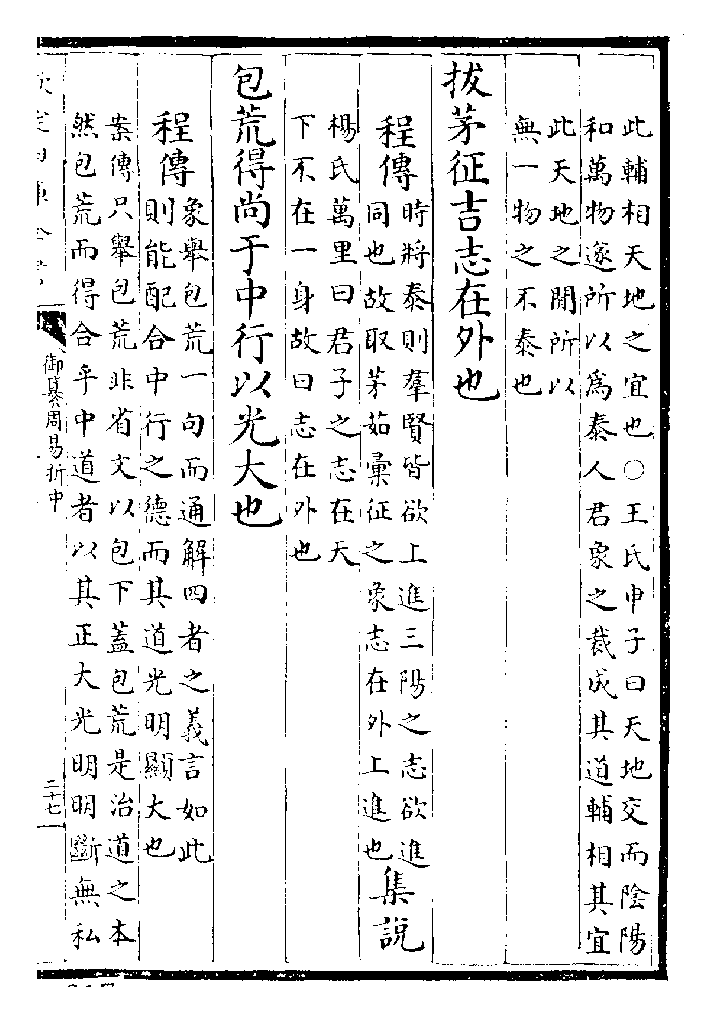 此輔相天地之宜也○王氏申子曰天地交而陰陽
和萬物遂所以為泰人君象之裁成其道輔相其宜
此天地之間所以
無一物之不泰也
拔茅征吉志在外也
程傳時將泰則羣賢皆欲上進三陽之志欲進
同也故取茅茹彙征之象志在外上進也集説
楊氏萬里曰君子之志在天
下不在一身故曰志在外也
包荒得尚于中行以光大也
程傳象舉包荒一句而通解四者之義言如此
則能配合中行之德而其道光明顯大也
案傳只舉包荒非省文以包下蓋包荒是治道之本
然包荒而得合乎中道者以其正大光明明斷無私
御纂周易折中
二十七